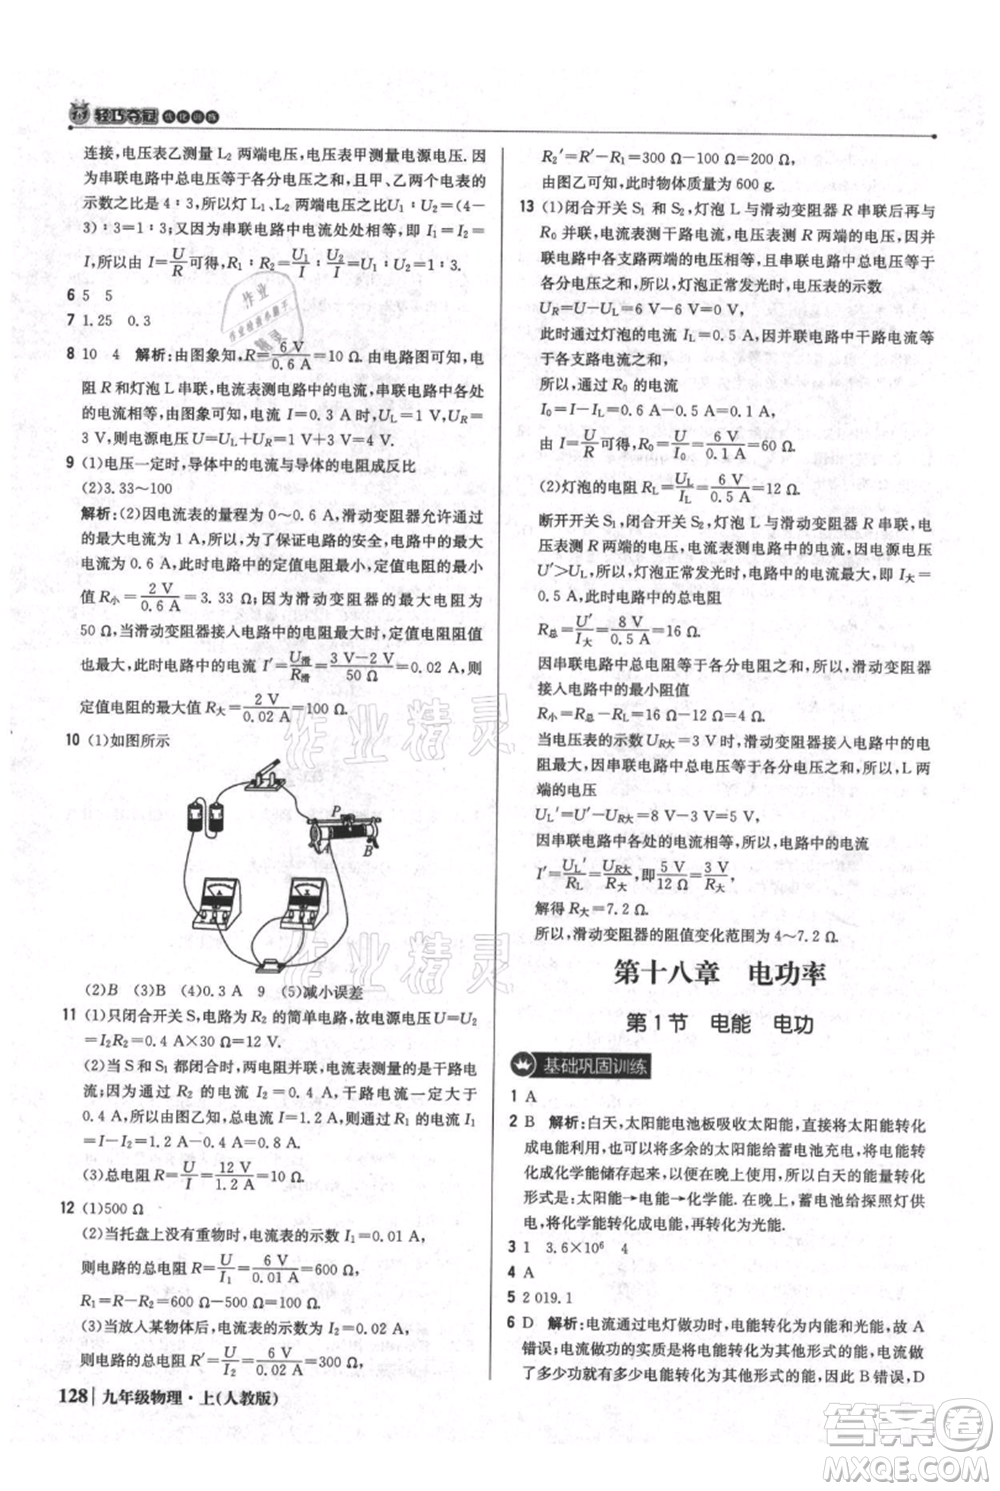 轻巧夺冠 优化训练
连接,电压表乙测量 L₂ 两端电压,电压表甲测量电源电压.因
为串联电路中总电压等于各分电压之和,且甲、乙两个电表的
示数之比是 4∶3,所以灯 L₁、L₂ 两端电压之比 U₁∶U₂=(4-
3)∶3=1∶3;又因为串联电路中电流处处相等,即 I₁=I₂=
I,所以由 I=U/R 可得,R₁∶R₂=U₁/I₁∶U₂/I₂=1∶3.
6 5 5
7 1.25 0.3
8 10 4 解析:由图象知,R=6 V/0.6 A=10 Ω,由电路图可知,电
阻 R 和灯泡 L 串联,电流表测电路中的电流,串联电路中各处
的电流相等,由图象可知,电流 I=0.3 A 时,UL=1 V,UR=
3 V,则电源电压 U=UL+UR=1 V+3 V=4 V.
9 (1)电压一定时,导体中的电流与导体的电阻成反比
(2)3.33~100
解析:(2)因电流表的量程为 0~0.6 A,滑动变阻器允许通过
的最大电流为 1 A,所以,为了保证电路的安全,电路中的最大
电流为 0.6 A,此时电路中的定值电阻最小,定值电阻的最小
值 R小=2 V/0.6 A=3.33 Ω;因为滑动变阻器的最大电阻为
50 Ω,当滑动变阻器接入电路中的电阻最大时,定值电阻阻值
也最大,此时电路中的电流 I′=U滑/R滑=3 V-2 V/50 Ω=0.02 A,则
定值电阻的最大值 R大=2 V/0.02 A=100 Ω.
10 (1)如图所示
P
A
B
(2)B (3)B (4)0.3 A 9 (5)减小误差
11 (1)只闭合开关 S,电路为 R₂ 的简单电路,故电源电压 U=U₂
=I₂R₂=0.4 A×30 Ω=12 V.
(2)当 S 和 S₁ 都闭合时,两电阻并联,电流表测量的是干路电
流,因电源电压不变,R₂ 中电流不变,干路电流一定大于
0.4 A,所以由图乙可知,总电流 I=1.2 A,则通过 R₁ 的电流 I₁
=I-I₂=1.2 A-0.4 A=0.8 A.
(3)总电阻 R=U/I=12 V/1.2 A=10 Ω.
12 (1)500 Ω
(2)当托盘上没有重物时,电流表的示数 I₁=0.01 A,
则电路的总电阻 R=U/I₁=6 V/0.01 A=600 Ω,
R₁=R-R₂=600 Ω-500 Ω=100 Ω.
(3)当放入某物体后,电流表的示数 I₂=0.02 A,
则电路的总电阻 R′=U/I₂=6 V/0.02 A=300 Ω,
R₂′=R′-R₁=300 Ω-100 Ω=200 Ω,
由图乙可知,此时物体质量为 600 g.
13 (1)闭合开关 S₁ 和 S₂,灯泡 L 与滑动变阻器 R 串联后再与
R₀ 并联,电流表测干路电流,电压表测 R 两端的电压,因并
联电路中各支路两端的电压相等,且串联电路中总电压等于
各分电压之和,所以,电压表的示数
UR=U-UL=6 V-6 V=0 V,
此时通过灯泡的电流 IL=0.5 A,因并联电路中干路电流
等于各支路电流之和,
所以,通过 R₀ 的电流
I₀=I-IL=0.6 A-0.5 A=0.1 A,
由 I=U/R 可得,R₀=U/I₀=6 V/0.1 A=60 Ω.
(2)灯泡的电阻 RL=UL/IL=6 V/0.5 A=12 Ω,
断开开关 S₁,闭合开关 S₂,灯泡 L 与滑动变阻器 R 串联,电
压表测 R 两端的电压,电流表测电路中的电流,因
U′>UL,所以,灯泡正常发光时,电路中的电流最大,即 I大=
0.5 A,此时电路中的总电阻
R总=U′/I大=8 V/0.5 A=16 Ω,
因串联电路中总电阻等于各分电阻之和,所以,滑动变阻器
接入电路中的最小阻值
R小=R总-RL=16 Ω-12 Ω=4 Ω,
当电压表的示数 UR大=3 V 时,滑动变阻器接入电路中的
电阻最大,因串联电路中总电压等于各分电压之和,所以,L 两
端的电压
UL′=U′-UR大=8 V-3 V=5 V,
因串联电路中各处的电流相等,所以,电路中的电流
I′=UL′/RL=UR大/R大,即5 V/12 Ω=3 V/R大,
解得 R大=7.2 Ω,
所以,滑动变阻器的阻值变化范围为 4~7.2 Ω.
第十八章 电功率
第 1 节 电能 电功
基础巩固训练
1 A
2 B 解析:白天,太阳能电池板吸收太阳能,将太阳能转化
成电能利用,也可以将多余的电能给蓄电池充电,将电能转
化成化学能储存起来,以便在晚上使用,所以白天的能量转化
形式是:太阳能→电能→化学能.在晚上,蓄电池给探照灯供
电,将化学能转化成电能,再转化为光能.
3 1 3.6×10⁶ 4
4 A
5 2 019.1
6 D 解析:电流通过电灯做功时,电能转化为内能和光能,故 A
错误;电流做功的实质是将电能转化为其他形式的能,电流做
了多少功就消耗多少电能,因此 B 错误,C 错误,D 正确.
128 九年级物理·上(人教版)
作业精灵
作业精灵
答案圈
MXQE.COM